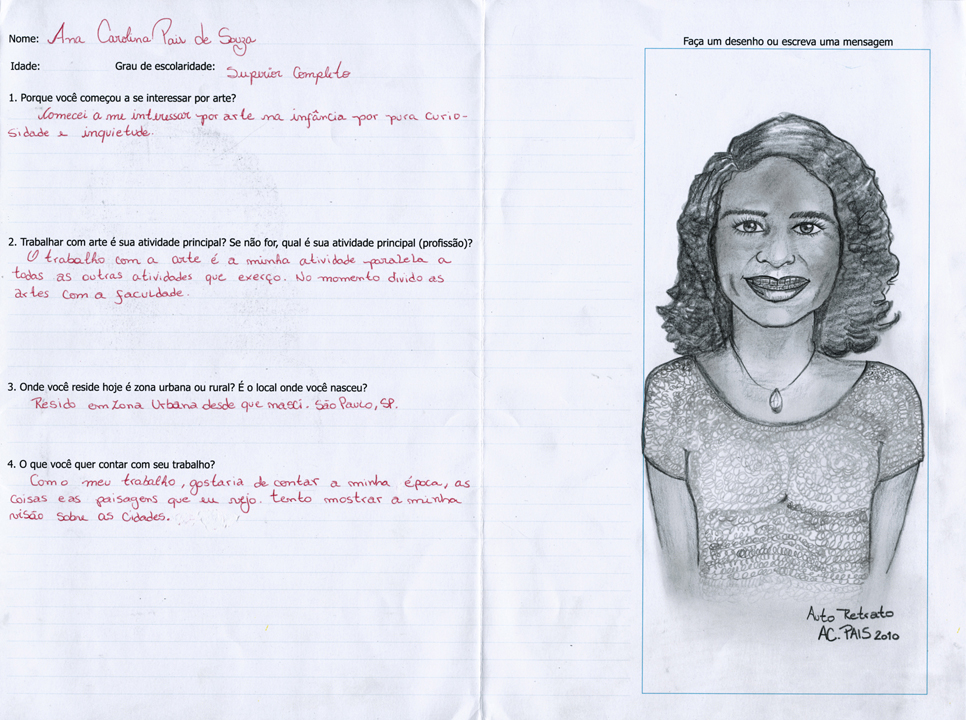 Nome: Ana Carolina Pais de Souza
Idade: Grau de escolaridade: Superior Completo
1. Porque você começou a se interessar por arte?
Comecei a me interessar por arte na infância por pura curio-
sidade e inquietude.
2. Trabalhar com arte é sua atividade principal? Se não for, qual é sua atividade principal (profissão)?
O trabalho com a arte é a minha atividade paralela a
todas as outras atividades que exerço. No momento divido as
artes com a faculdade.
3. Onde você reside hoje é zona urbana ou rural? É o local onde você nasceu?
Resido em Zona Urbana desde que nasci. São Paulo, SP.
4. O que você quer contar com seu trabalho?
Com o meu trabalho, gostaria de contar a minha época, as
coisas e as paisagens que eu vejo. tento mostrar a minha
visão sobre as cidades.
Faça um desenho ou escreva uma mensagem
Auto Retrato
AC. PAIS 2010